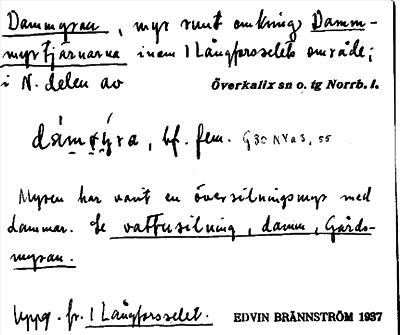 Dammyran, myr runt omkring Damm-
myrtjärnarna inom 1 Långforsselets område;
i N. delen av Överkalix sn o. tg Norrb. l.
bf. fem.
Myren har varit en översilningsmyr med
dammar. Se vattusilning, damm, Gårds-
myran.
Uppg. fr. 1 Långforsselet. EDVIN BRÄNNSTRÖM 1937